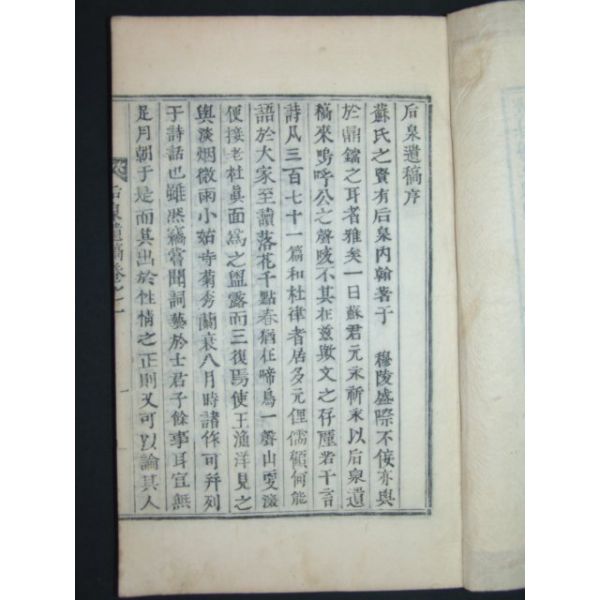 后泉遺稿序
蘇氏之賢有后泉內翰著于 穆陵盛際不佞亦與
於鼎鐺之耳者雅矣一日蘇君元永祈永以后泉遺
稿來嗚呼公之聲咳不其在玆歟文之存廑若干言
詩凡三百七十一篇和杜律者居多元俚儒顧何能
語於大家至讀落花千點春猶在啼鳥一聲山更深
便接老杜眞面爲之盥露而三復焉使王漁洋見之
與淡烟微雨小姑寺菊秀蘭衰八月時諸作可幷列
于詩話也雖然竊嘗聞詞藝於士君子餘事耳豈無
是月朝于是而其出於性情之正則又可以論其人
后泉遺稿卷之一
一